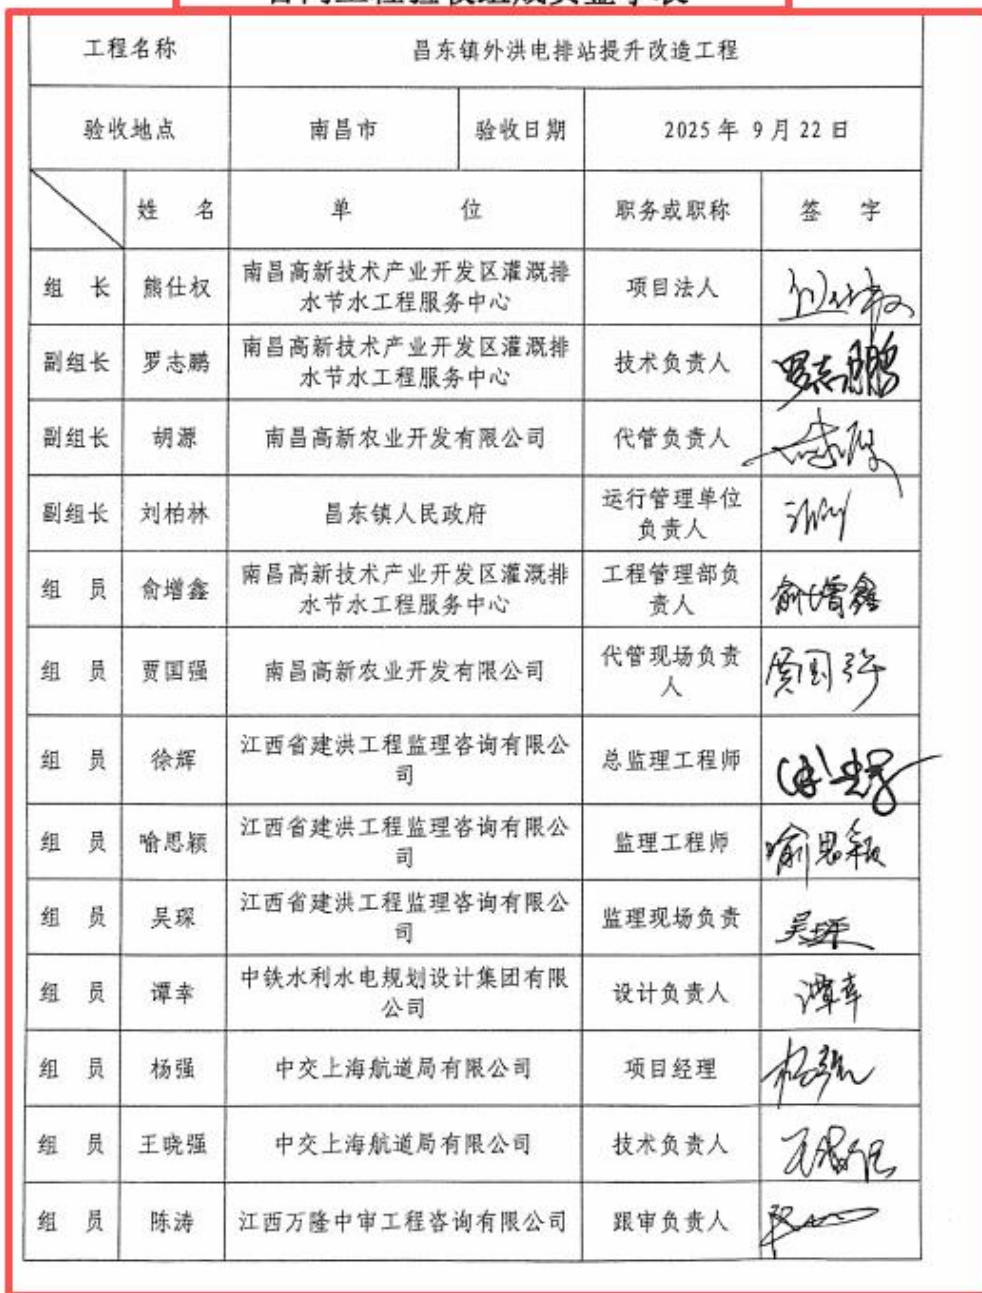 合同工程验收组成员签字表
工程名称 昌东镇外洪电排站提升改造工程
验收地点 南昌市 验收日期 2025年9月22日
姓 名 单 位 职务或职称 签 字
组 长 熊仕权 南昌高新技术产业开发区灌溉排
水节水工程服务中心 项目法人
副组长 罗志鹏 南昌高新技术产业开发区灌溉排
水节水工程服务中心 技术负责人 罗志鹏
副组长 胡源 南昌高新农业开发有限公司 代管负责人
副组长 刘柏林 昌东镇人民政府 运行管理单位
负责人
组 员 俞增鑫 南昌高新技术产业开发区灌溉排
水节水工程服务中心 工程管理部负
责人 俞增鑫
组 员 贾国强 南昌高新农业开发有限公司 代管现场负责
人 贾国强
组 员 徐辉 江西省建洪工程监理咨询有限公
司 总监理工程师
组 员 喻思颖 江西省建洪工程监理咨询有限公
司 监理工程师 喻思颖
组 员 吴琛 江西省建洪工程监理咨询有限公
司 监理现场负责 吴琛
组 员 谭幸 中铁水利水电规划设计集团有限
公司 设计负责人 谭幸
组 员 杨强 中交上海航道局有限公司 项目经理 杨强
组 员 王晓强 中交上海航道局有限公司 技术负责人
组 员 陈涛 江西万隆中审工程咨询有限公司 跟审负责人